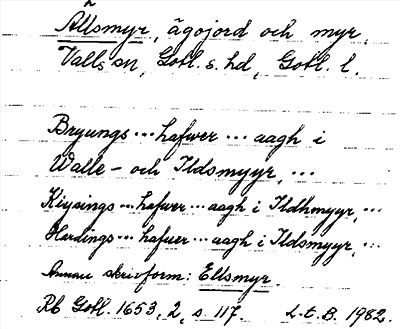 Ällsmyr, ägojord och myr.
Valls sn, Gotl. s. hd, Gotl. l.
Bryungs --- hafwer --- aagh i
Walle- och Ildsmyyr, ---
Kiysings --- hafwer --- aagh i Ildhmyyr, ---
Hardings --- hafuer --- aagh i Ildsmyyr, ---
Annan skrivform: Ellsmyr
Rb Gotl. 1653, 2, s. 117. L.E.B. 1982.